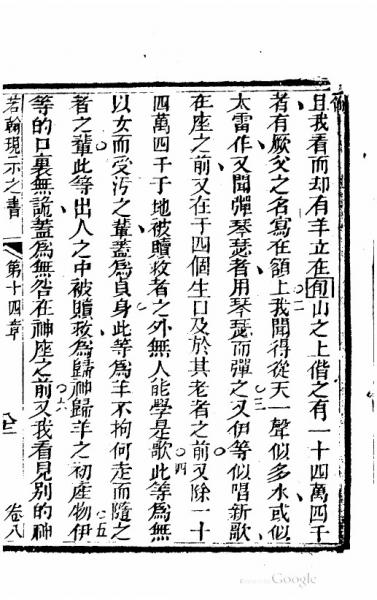 且我看而却有羊立在旬山之上偕之有一十四萬四千
者有厥父之名寫在額上我聞得從天一聲似多水或似
太雷作又聞彈琴瑟者用琴瑟而彈之又伊等似唱新歌
在座之前又在于四個生口及於其老者之前又除一十
四萬四千于地被贖救者之外無人能學是歌此等為無
以女而受汚之輩蓋為貞身此等為羊不拘何走而隨之
者之輩此等出人之中被贖救為歸神歸羊之初產物伊
等的口裏無詭蓋為無咎在神座之前又我看見別的神
若翰現示之書
第十四章
卷八
○二
○三
○四
○五
○六
Google